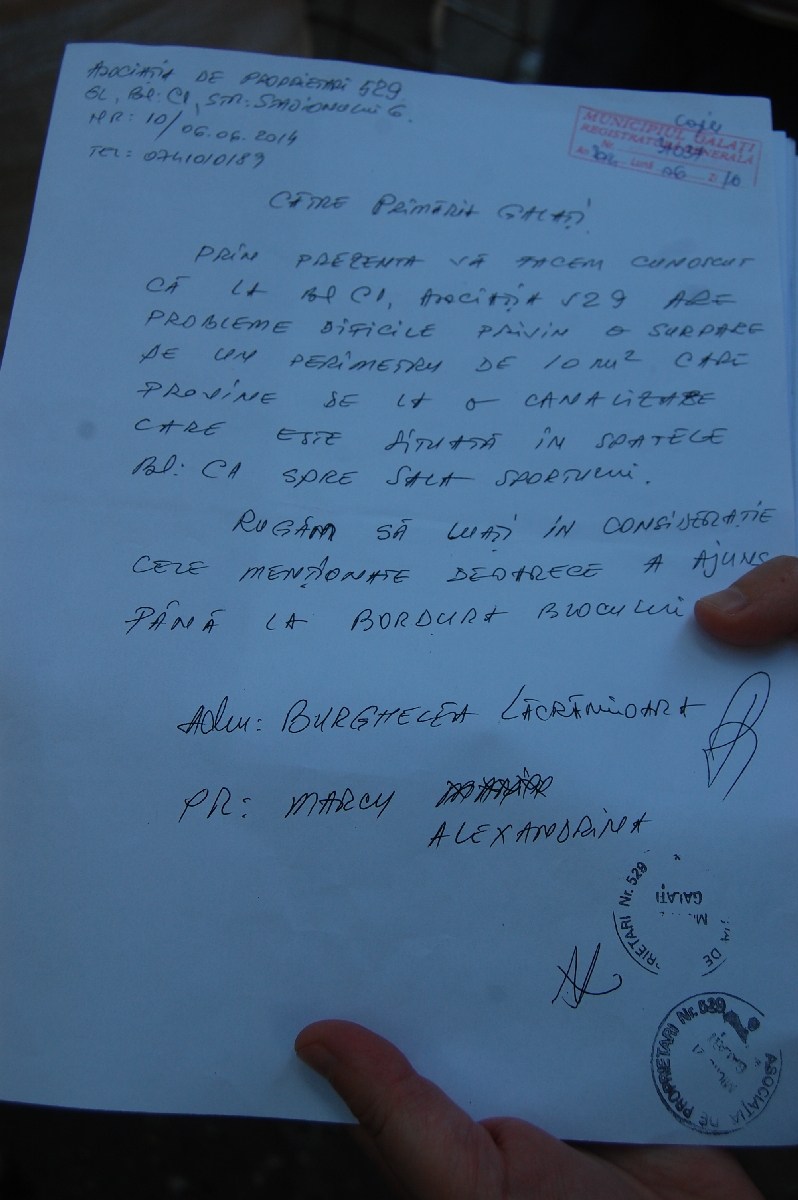 ASOCIAȚIA DE PROPRIETARI 529
GL, Bl: C1, STR: STADIONULUI 6.
NR: 10/06.06.2014
TEL: 0741010189
Copie
MUNICIPIUL GALAȚI
REGISTRATURA GENERALĂ
Nr.
LUNA 06 Zi 10
CĂTRE PRIMĂRIA GALAȚI
PRIN PREZENTA VĂ FACEM CUNOSCUT
CĂ LA Bl C1, ASOCIAȚIA 529 ARE
PROBLEME DIFICILE PRIVIN O SURPARE
DE UN PERIMETRU DE 10 m² CARE
PROVINE DE LA O CANALIZARE
CARE ESTE SITUATĂ ÎN SPATELE
Bl: C1 SPRE SALA SPORTULUI.
RUGĂM SĂ LUAȚI IN CONSIDERAȚIE
CELE MENȚIONATE DEOARECE A AJUNS
PÂNĂ LA BORDURA BLOCULUI
Adm: BURGHELEA LĂCRĂMIOARA
PR: MARCU
ALEXANDRINA
RIETARI Nr. 529
GALAȚI
DE
ASOCIAȚIA DE PROPRIETARI Nr. 529